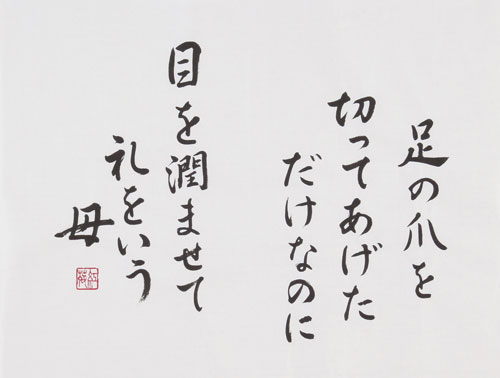 足の爪を
切ってあげた
だけなのに
目を潤ませて
礼をいう
母